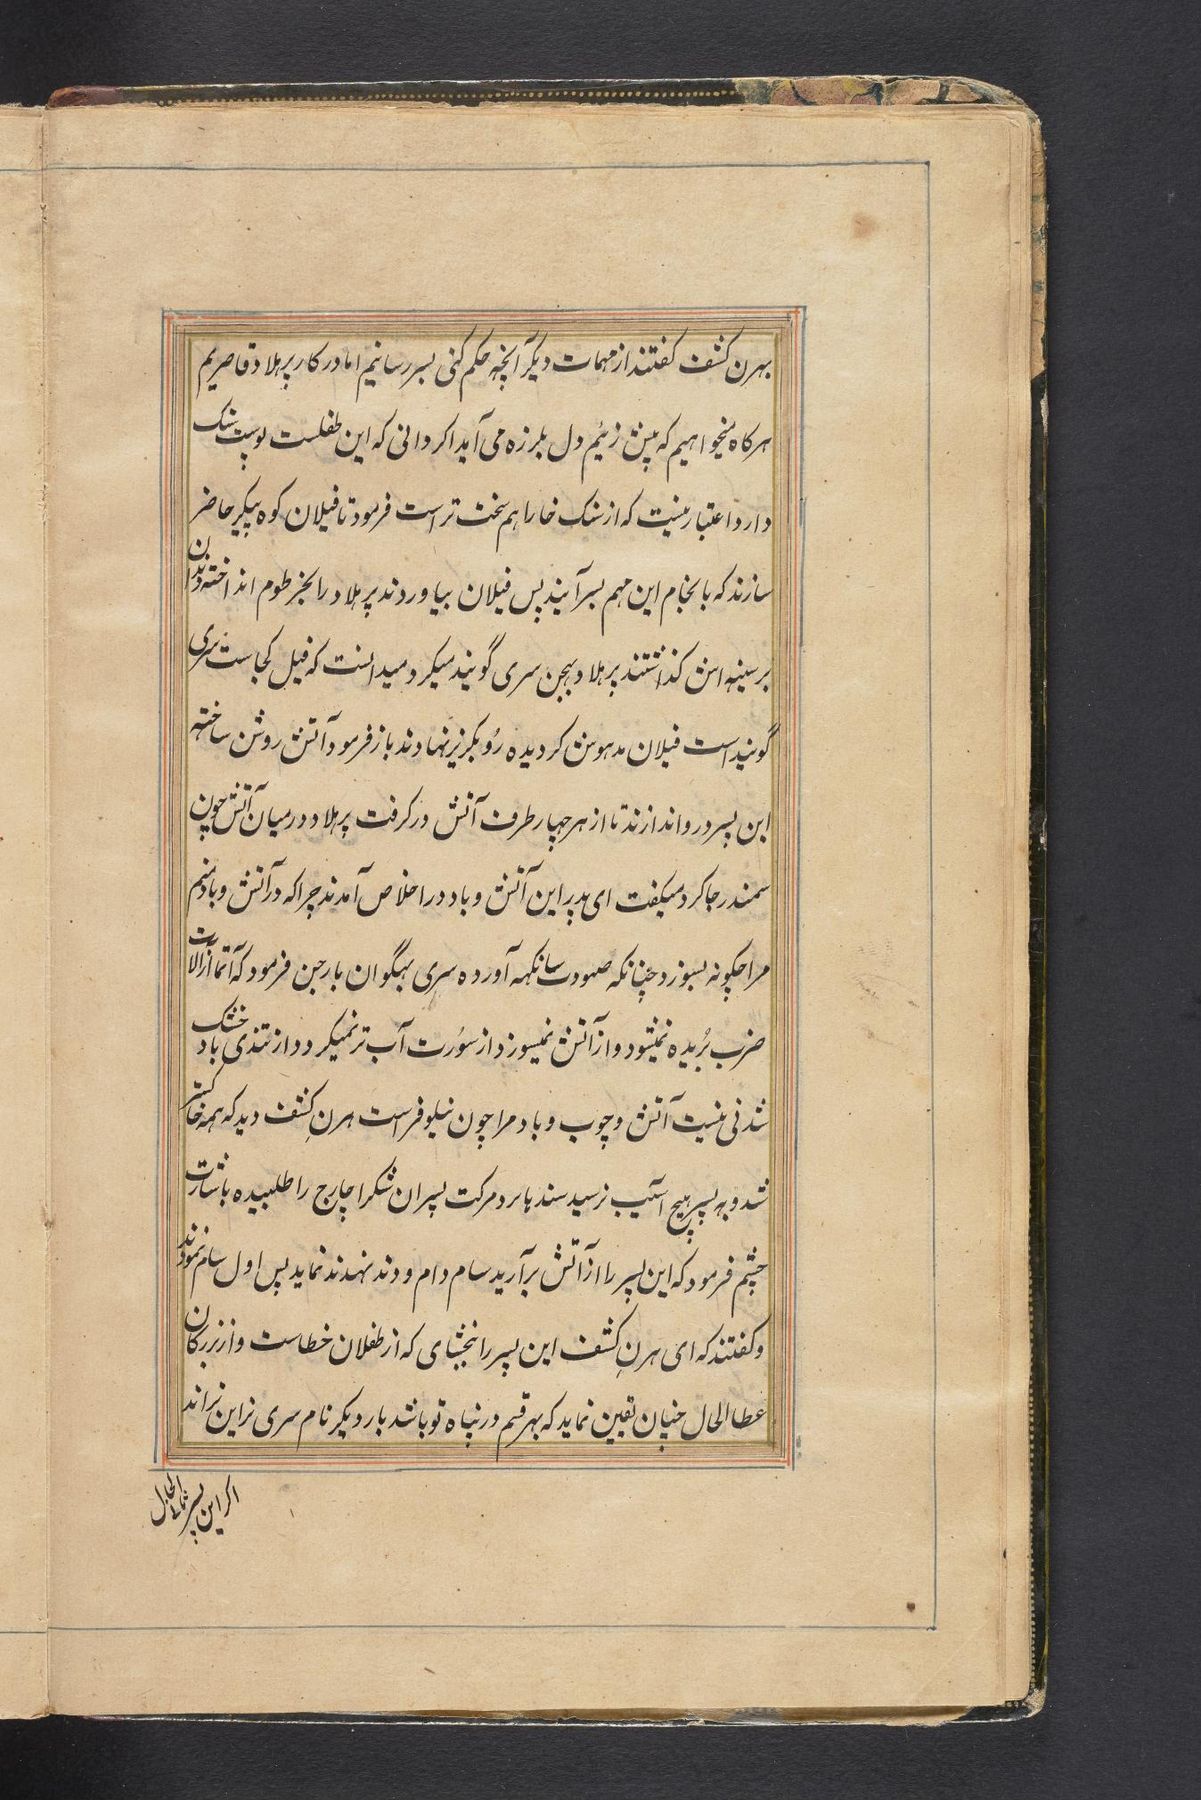 بهرن کشف کفتند از مهمات دیکر آنچه حکم کنی بسر رسانیم اما در کار پرهلاد قاصریم
هرکاه میخواهیم که پیش زنیم دل بلرزه می آید اکر دانی که این طفلست پوست تنک
دارد اعتبار نیست که از سنک خارا هم سخت تر است فرمود تا فیلان کوه پیکر حاضر
سازند که بانجام این مهم بسر آیند پس فیلان بیاوردند پرهلاد را بخرطوم انداخته دندان
بر سینه اش کذاشتند پرهلاد بهجن سری گوبند میکرد میدانست که فیل کجاست سری
گوبند است فیلان مدهوش کردیده رو بکریز نهادند باز فرمود آتش روشن ساخته
این پسر در و اندازند تا از هر چهار طرف آتش در کرفت پرهلاد در میان آتش چون
سمندر جا کرد میکفت ای پدر این آتش و باد در اخلاص آمدند چرا که در آتش و باد منم
مرا چکونه بسوزد چنانکه صورت سانکهه آورده سری بهگوان بارجن فرمود که آتما از آلات
ضرب بُریده نمیشود و از آتش نمیسوزد از سورت آب تر نمیکردد از تندی باد خشک
شدنی نیست آتش و چوب و باد مرا چون نیلوفر است هرن کشف دید که همه خاکستر
شد و به پسر هیچ آسیب نرسید سند بامرد مرکت پسران شکراچارج را طلبیده باشارت
چشم فرمود که این پسر را از آتش برآرید سام دام و دند نهدند نماید پس اول سام نمودند
و کفتند که ای هرن کشف این پسر را ببخشای که از طفلان خطاست و از بزرکان
عطا الحال چنان تعین نماید که بهر قسم در پناه تو باشد بار دیکر نام سری نراین نراند
اکر این پسر